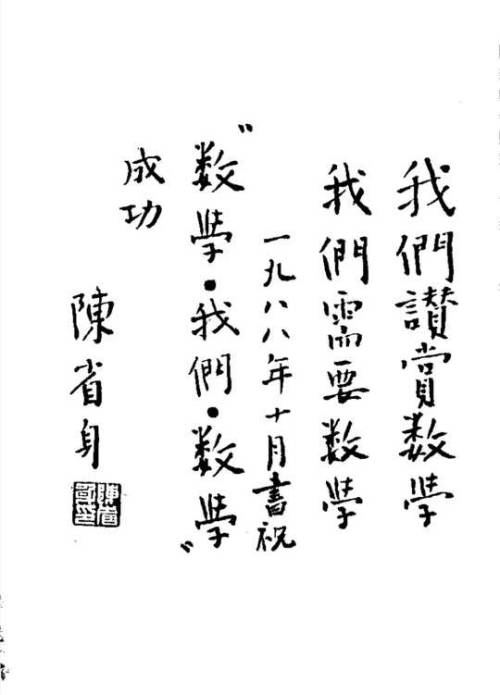 我們讃賞数學
我們需要数學
一九八八年十月書祝
"数學·我們·数學"
成功
陳省身